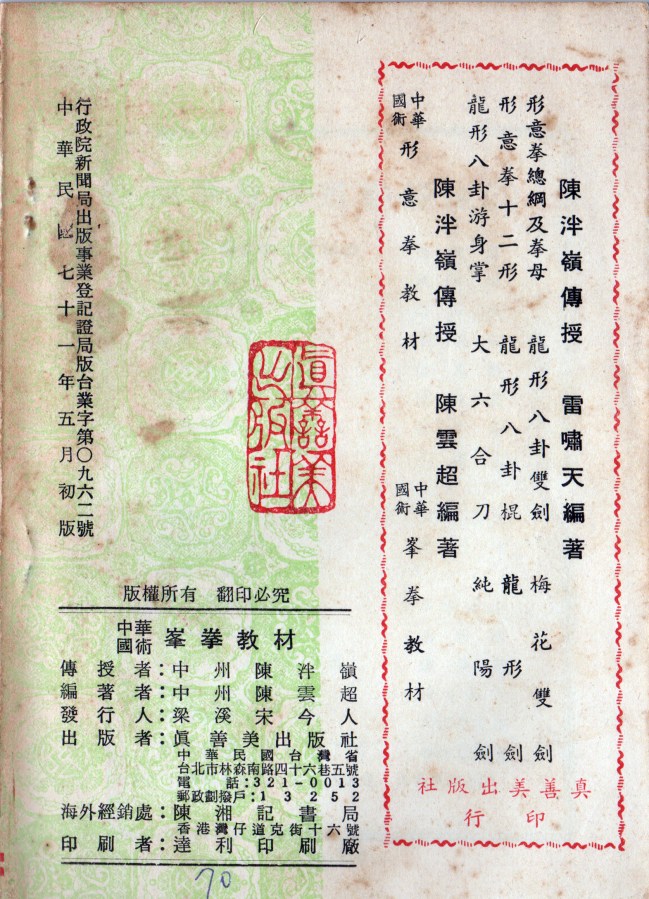 陳泮嶺傳授　雷嘯天編著
形意拳總綱及拳母　龍形八卦雙劍　梅花雙劍
形意拳十二形　龍形八卦棍　龍形劍
龍形八卦游身掌　大六合刀　純陽劍
陳泮嶺傳授　陳雲超編著
中華國術形意拳教材　中華國術峯拳教材
真善美出版社
印行
眞善美出版社
行政院新聞局出版事業登記證局版台業字第〇九六二號
中華民國七十一年五月初版
版權所有　翻印必究
中華國術　峯拳教材
傳授者：中州陳泮嶺
編著者：中州陳雲超
發行人：梁溪宋今人
出版者：眞善美出版社
中華民國台灣省
台北市林森南路四十六巷五號
電話：321-0013
郵政劃撥戶：13252
海外經銷處：陳湘記書局
香港灣仔道克街十六號
印刷者：達利印刷廠
70